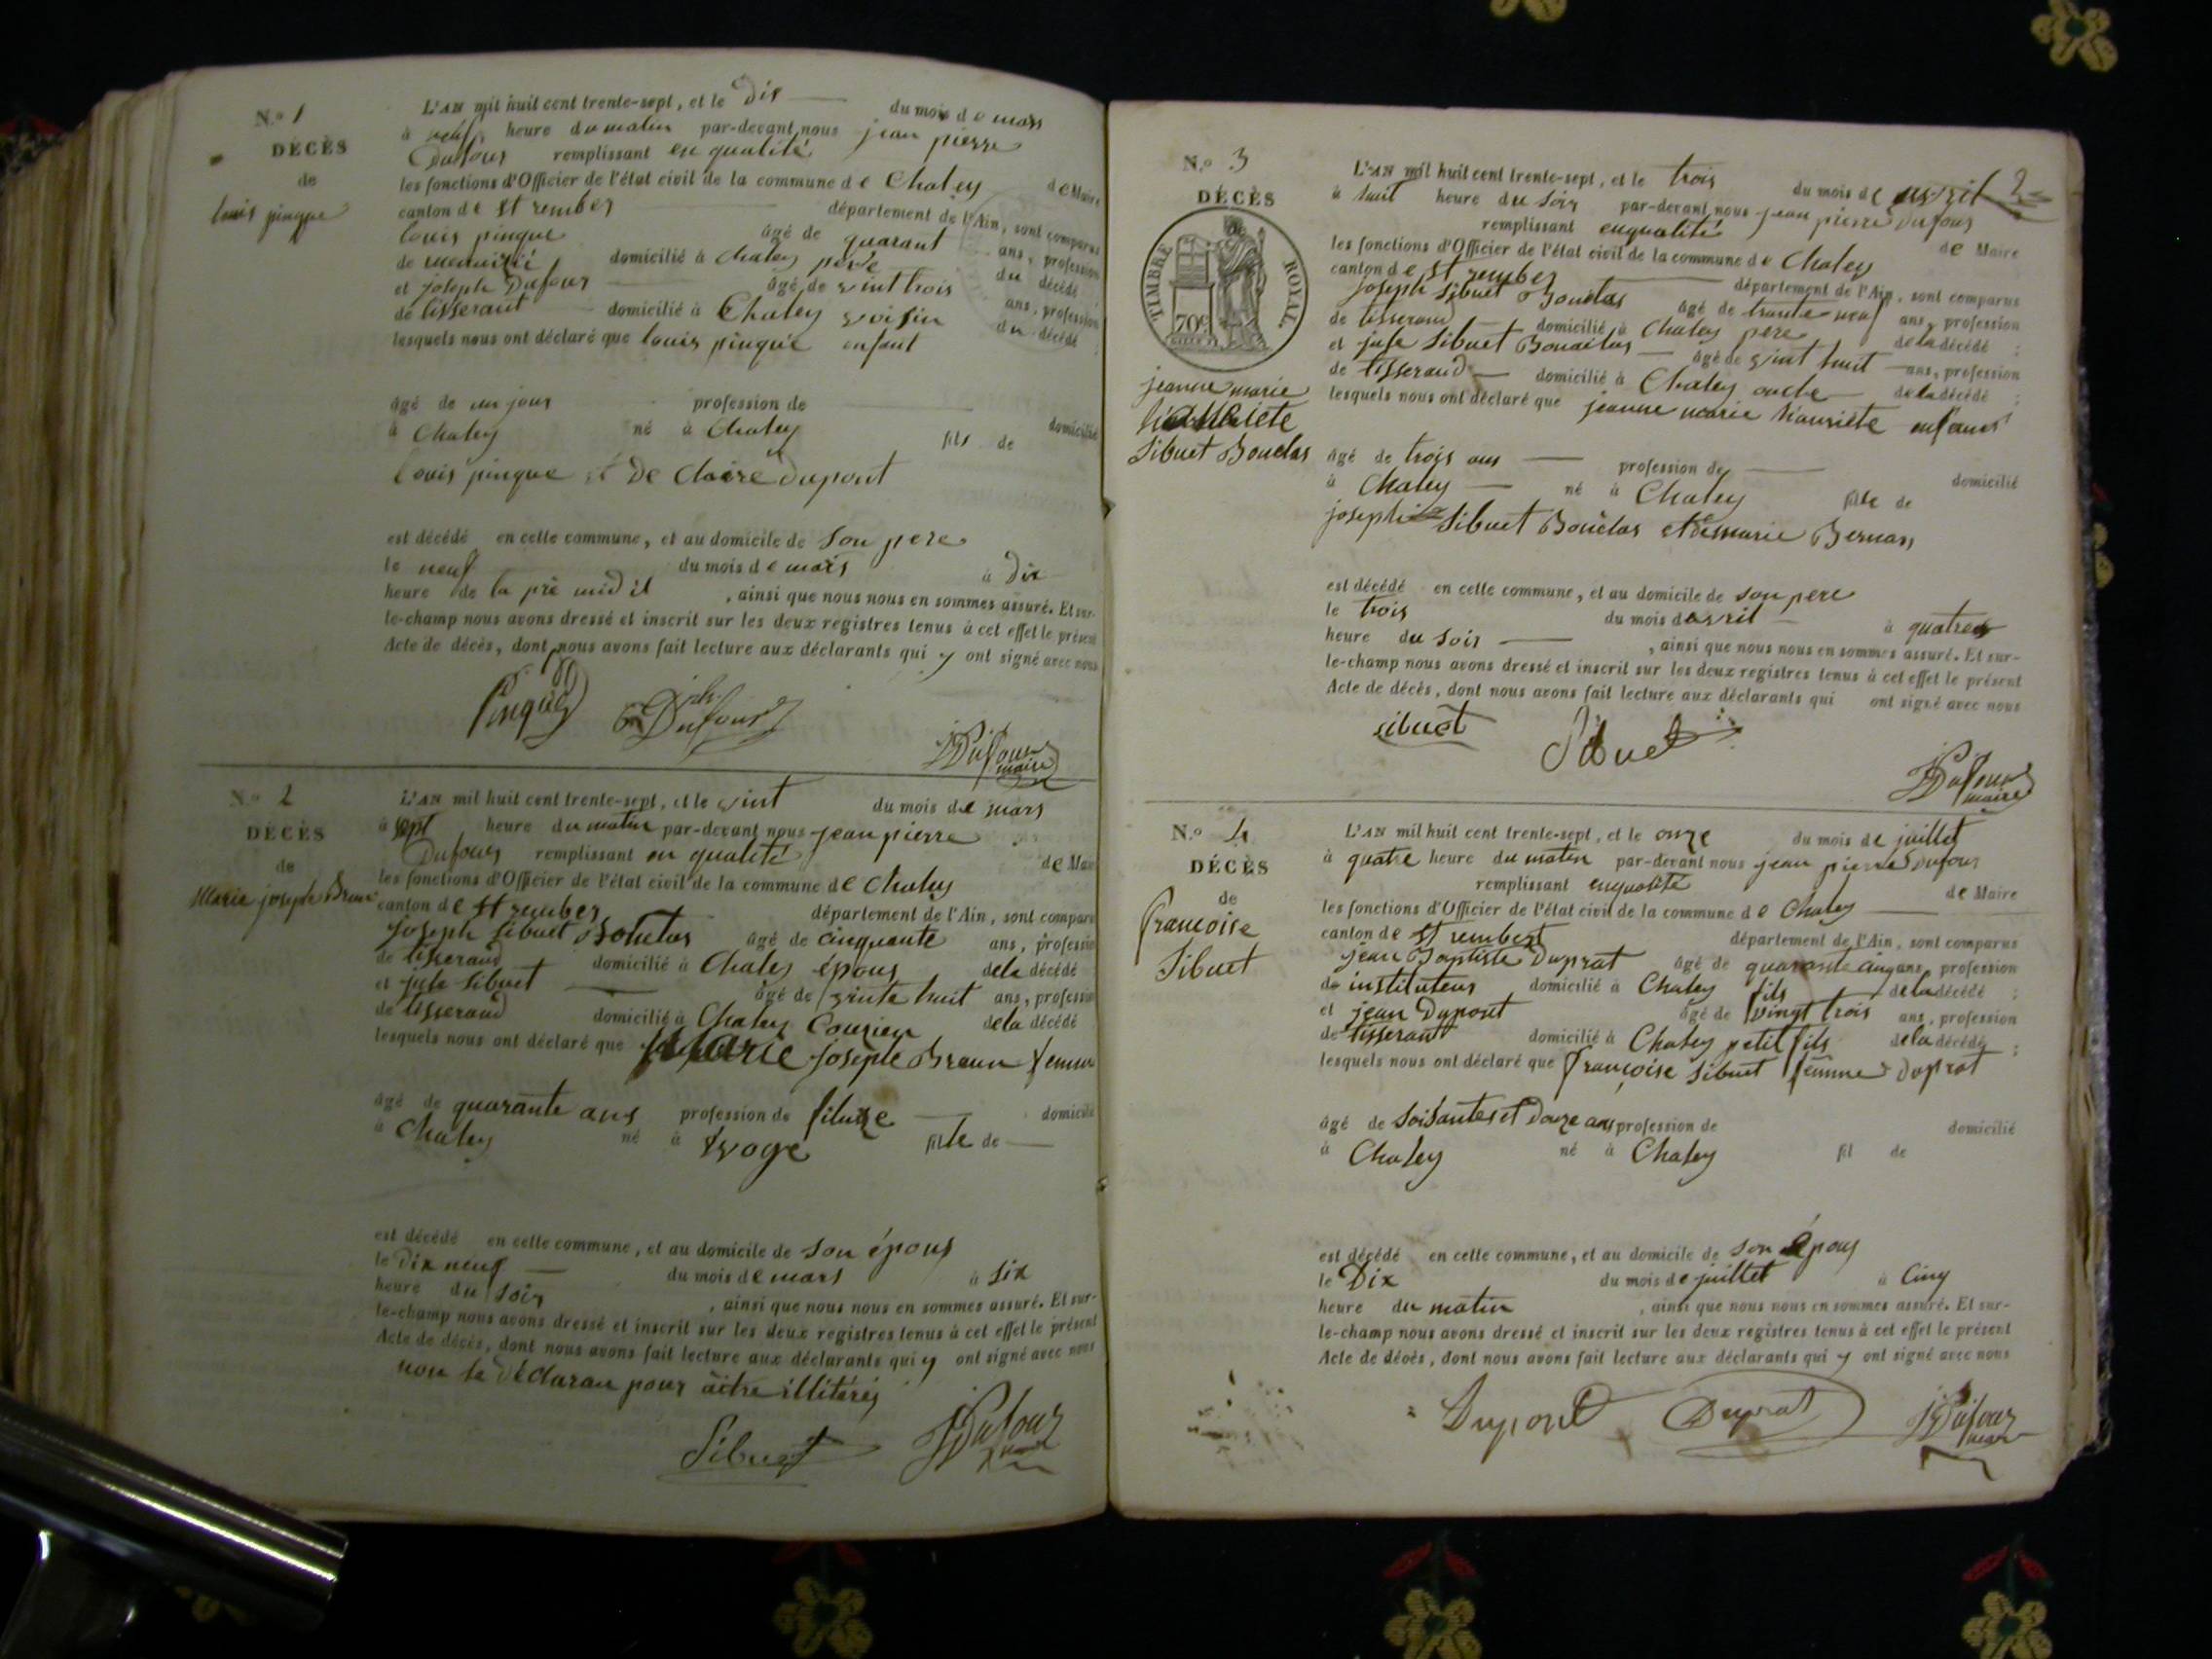 N.º 1
DÉCÈS
de
louis pinque
L'AN mil huit cent trente-sept, et le Dix du mois de mars
à neuf heure du matin par-devant nous jean pierre
Dufour remplissant en qualité de Maire
les fonctions d'Officier de l'état civil de la commune de Chaley
canton de St rember département de l'Ain, sont comparus
louis pinque âgé de quarant ans, profession
de domicilié à Chaley père du décédé
et joseph Dufour âgé de vint trois ans, profession
de tisserant domicilié à Chaley voisin du décédé
lesquels nous ont déclaré que louis pinque enfant
âgé de un jour profession de domicilié
à Chaley né à Chaley fils de
louis pinque et De Claire Dupont
est décédé en cette commune, et au domicile de son pere
le neuf du mois de mars à Dix
heure de la pré midit , ainsi que nous nous en sommes assuré. Et sur-
le-champ nous avons dressé et inscrit sur les deux registres tenus à cet effet le présent
Acte de décès, dont nous avons fait lecture aux déclarants qui y ont signé avec nous
Pinque jh Dufour
JPDufour
maire
N.º 2
DÉCÈS
de
Marie josephe Braun
L'AN mil huit cent trente-sept, et le vint du mois de mars
à sept heure du matin par-devant nous jean pierre
Dufour remplissant en qualité de Mai
les fonctions d'Officier de l'état civil de la commune de Chaley
canton de St rember département de l'Ain, sont compar
joseph Sibuet Bouclas âgé de cinquante ans, professio
de tisserand domicilié à Chaley épous dela décédé
et jufe Sibuet âgé de trinte huit ans, professio
de tisserand domicilié à Chaley Cousien dela décédé
lesquels nous ont déclaré que Marie josephe Braun femme
âgé de quarante ans profession de filuse domicilié
à Chaley né à Evoge fille de
est décédé en cette commune, et au domicile de son épous
le Dix neuf du mois de mars à six
heure du soir , ainsi que nous nous en sommes assuré. Et sur-
le-champ nous avons dressé et inscrit sur les deux registres tenus à cet effet le présent
Acte de décès, dont nous avons fait lecture aux déclarants qui y ont signé avec nous
non le déclaran pour aitre illitéréj
Sibuet JPDufour
N.º 3
DÉCÈS
TIMBRE ROYAL
70c
jeanne marie
hauriete
Sibuet Bouclas
2
L'AN mil huit cent trente-sept, et le trois du mois de avril
à huit heure du soir par-devant nous jean pierre Dufour
remplissant enqualité de Maire
les fonctions d'Officier de l'état civil de la commune de Chaley
canton de St rember département de l'Ain, sont comparus
joseph Sibuet Bouclas âgé de trante neuf ans, profession
de tisserand domicilié à Chaley pere dela décédé ;
et jufe Sibuet Bouclas âgé de vint huit ans, profession
de tisserand domicilié à Chaley oncle dela décédé ;
lesquels nous ont déclaré que jeanne marie hauriete enfant
âgé de trois ans profession de domicilié
à Chaley né à Chaley fille de
joseph Sibuet Bouclas et de marie Bernar
est décédé en cette commune, et au domicile de son pere
le trois du mois d avril à quatre
heure du soir , ainsi que nous nous en sommes assuré. Et sur-
le-champ nous avons dressé et inscrit sur les deux registres tenus à cet effet le présent
Acte de décès, dont nous avons fait lecture aux déclarants qui ont signé avec nous
sibuet Sibuet
JPDufour
maire
N.º 4
DÉCÈS
de
francoise
Sibuet
L'AN mil huit cent trente-sept, et le onze du mois de juillet
à quatre heure du matin par-devant nous jean pierre Dufour
remplissant enqualité de Maire
les fonctions d'Officier de l'état civil de la commune de Chaley
canton de St rembert département de l'Ain, sont comparus
jean Baptiste Duprat âgé de quarante cinq ans, profession
de instituteur domicilié à Chaley fils dela décédé ;
et jean Dupont âgé de vingt trois ans, profession
de tisserant domicilié à Chaley petit fils dela décédé ;
lesquels nous ont déclaré que françoise Sibuet femme Duprat
âgé de soisantes et Douze ans profession de domicilié
à Chaley né à Chaley fil de
est décédé en cette commune, et au domicile de son épous
le Dix du mois de juillet à Cinq
heure du matin , ainsi que nous nous en sommes assuré. Et sur-
le-champ nous avons dressé et inscrit sur les deux registres tenus à cet effet le présent
Acte de décès, dont nous avons fait lecture aux déclarants qui y ont signé avec nous
Dupont Duprat JPDufour
maire